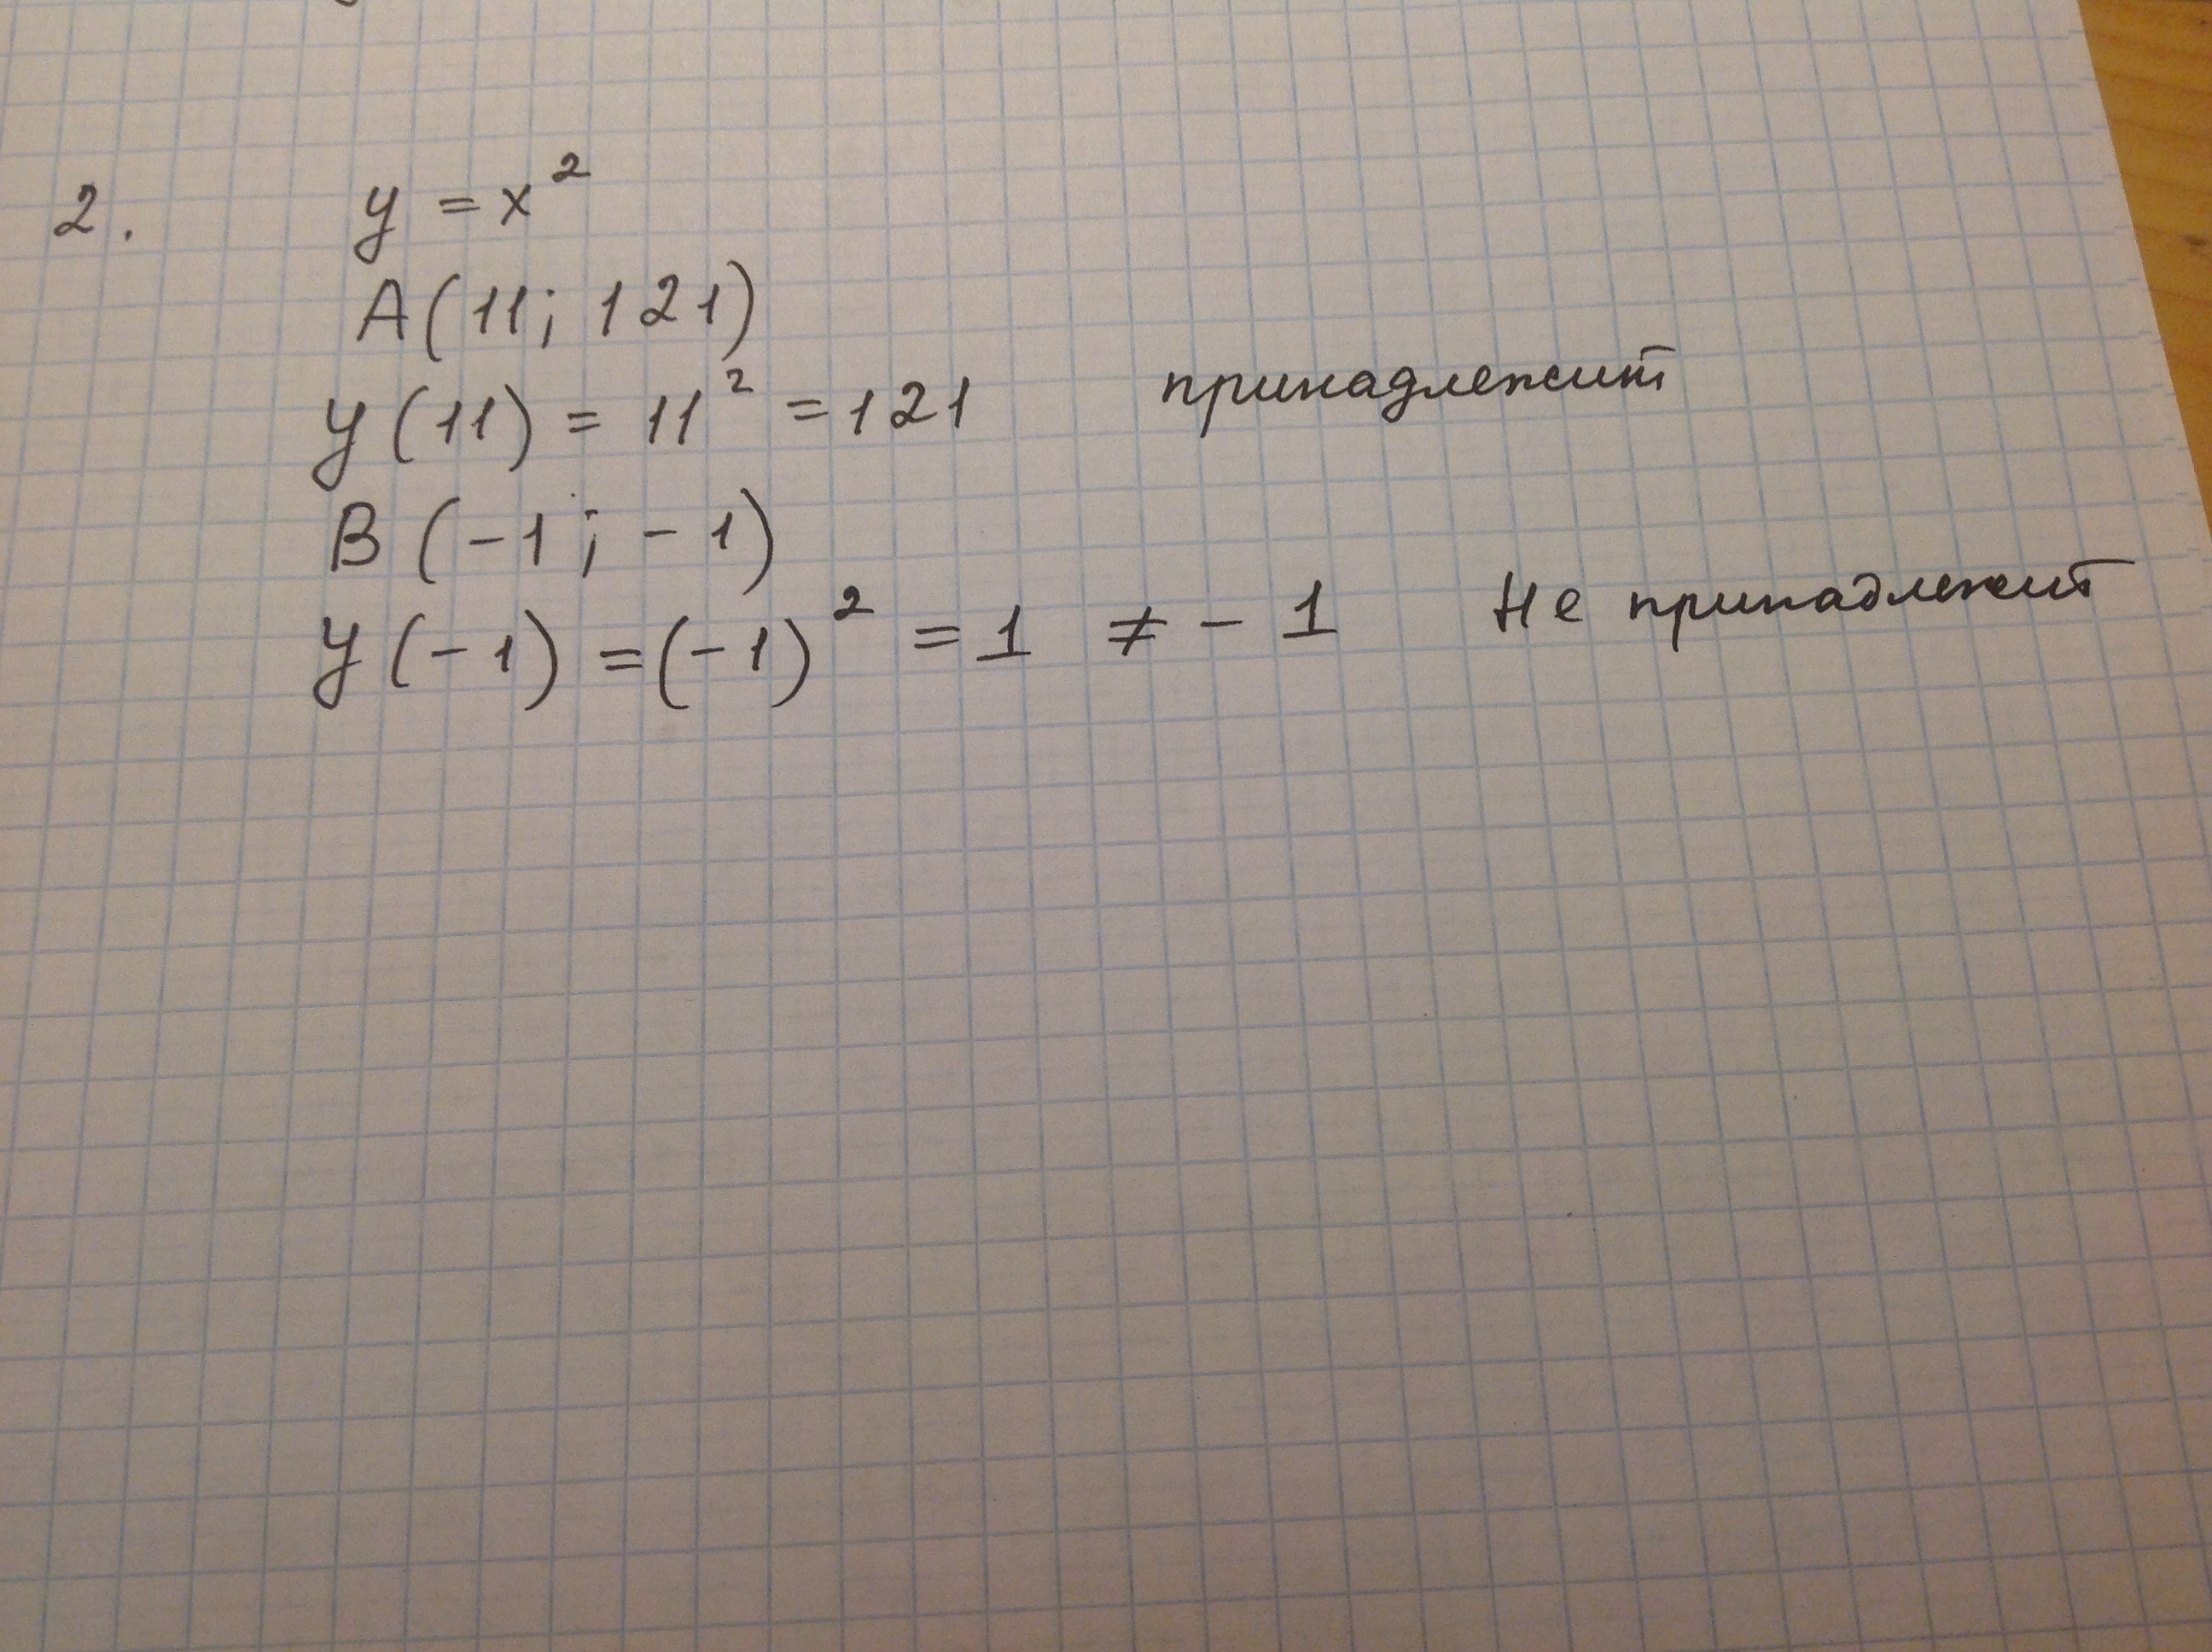 2. y = x²
A(11; 121)
y(11) = 11² = 121 принадлежит
B(-1; -1)
y(-1) = (-1)² = 1 ≠ - 1 Не принадлежит